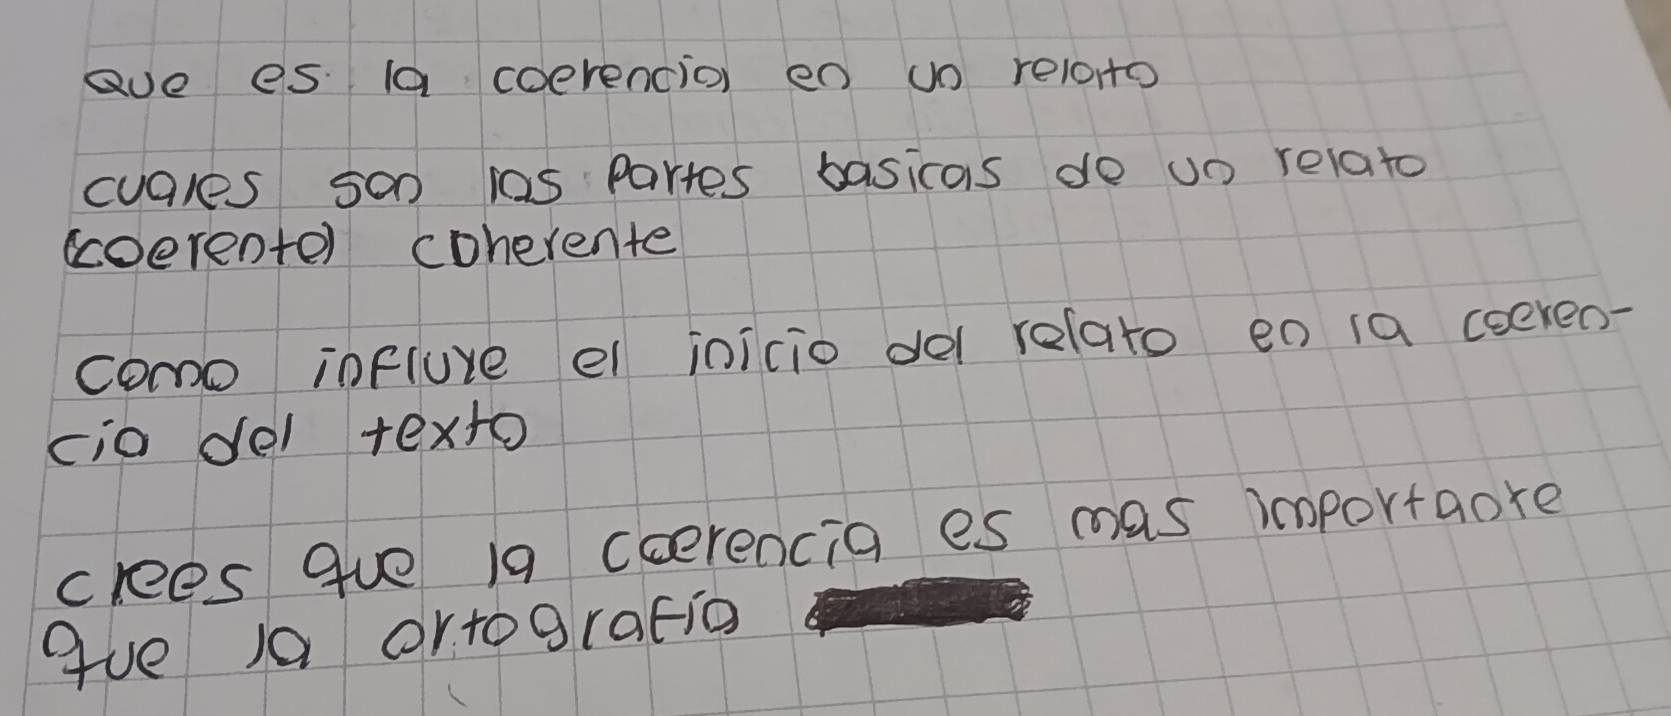 Que es la coerencia en un relato
cuales son las partes basicas de un relato
(coerente) coherente
como influye el inicio del relato en la coeren-
cia del texto
crees que la coerencia es mas importante
que la ortografia